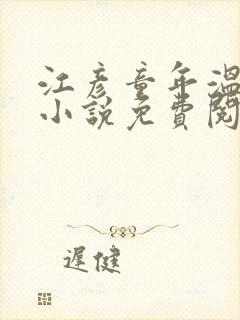 江彦童年温
小說免費閱
遲健